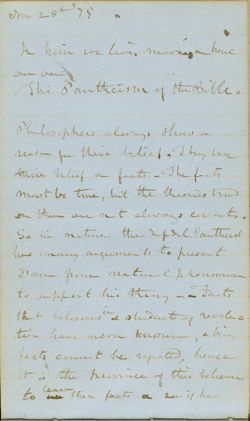 28th 75
In him we live, move & have
our being
The Pantheism of the Bible.
Philosophers always show a
reason for their belief. They base
their belief on facts. The facts
must be true, but the theories
on them are not always correct.
So in nature the Infidel Pantheist
has many arguments to present
drawn from natural phenomena
to support his theory — Facts
that believers in & students of revela-
tion have never known, & being
facts cannot be refuted, hence
it is the province of the believer
to learn these facts &